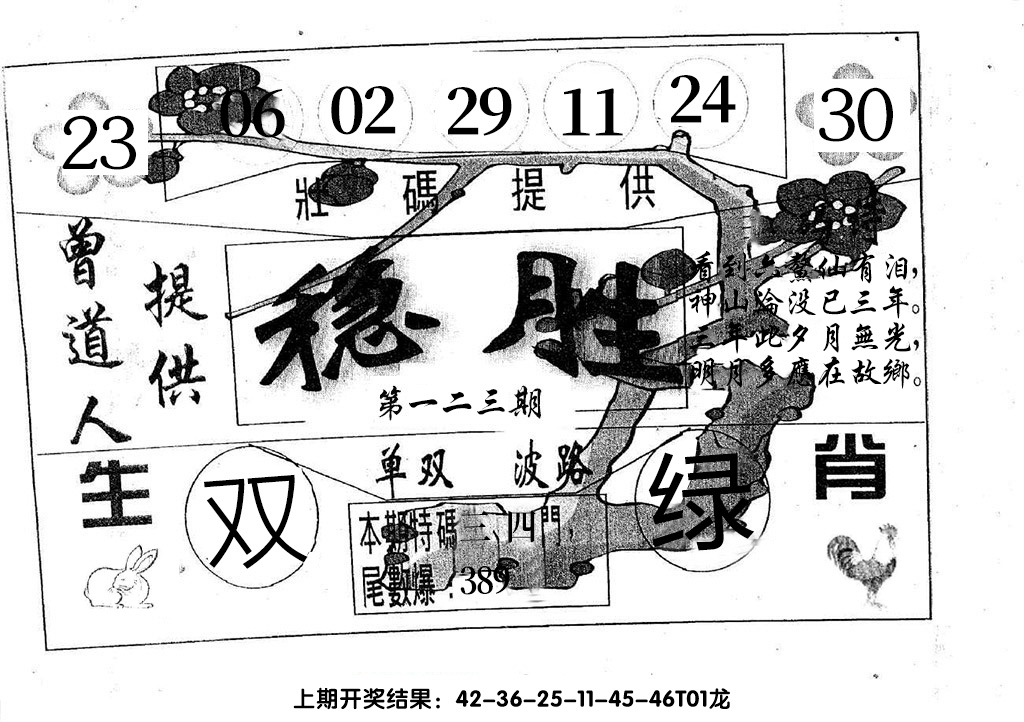 23 06 02 29 11 24 30
壯碼提供
曾道人
提供
稳胜
第一二三期
看到六鰲仙有泪，
神山淪没已三年。
三年此夕月無光，
明月多應在故鄉。
生肖
单双 波路
双 绿
本期特碼三、四門，
尾數爆：389
上期开奖结果：42-36-25-11-45-46T01龙